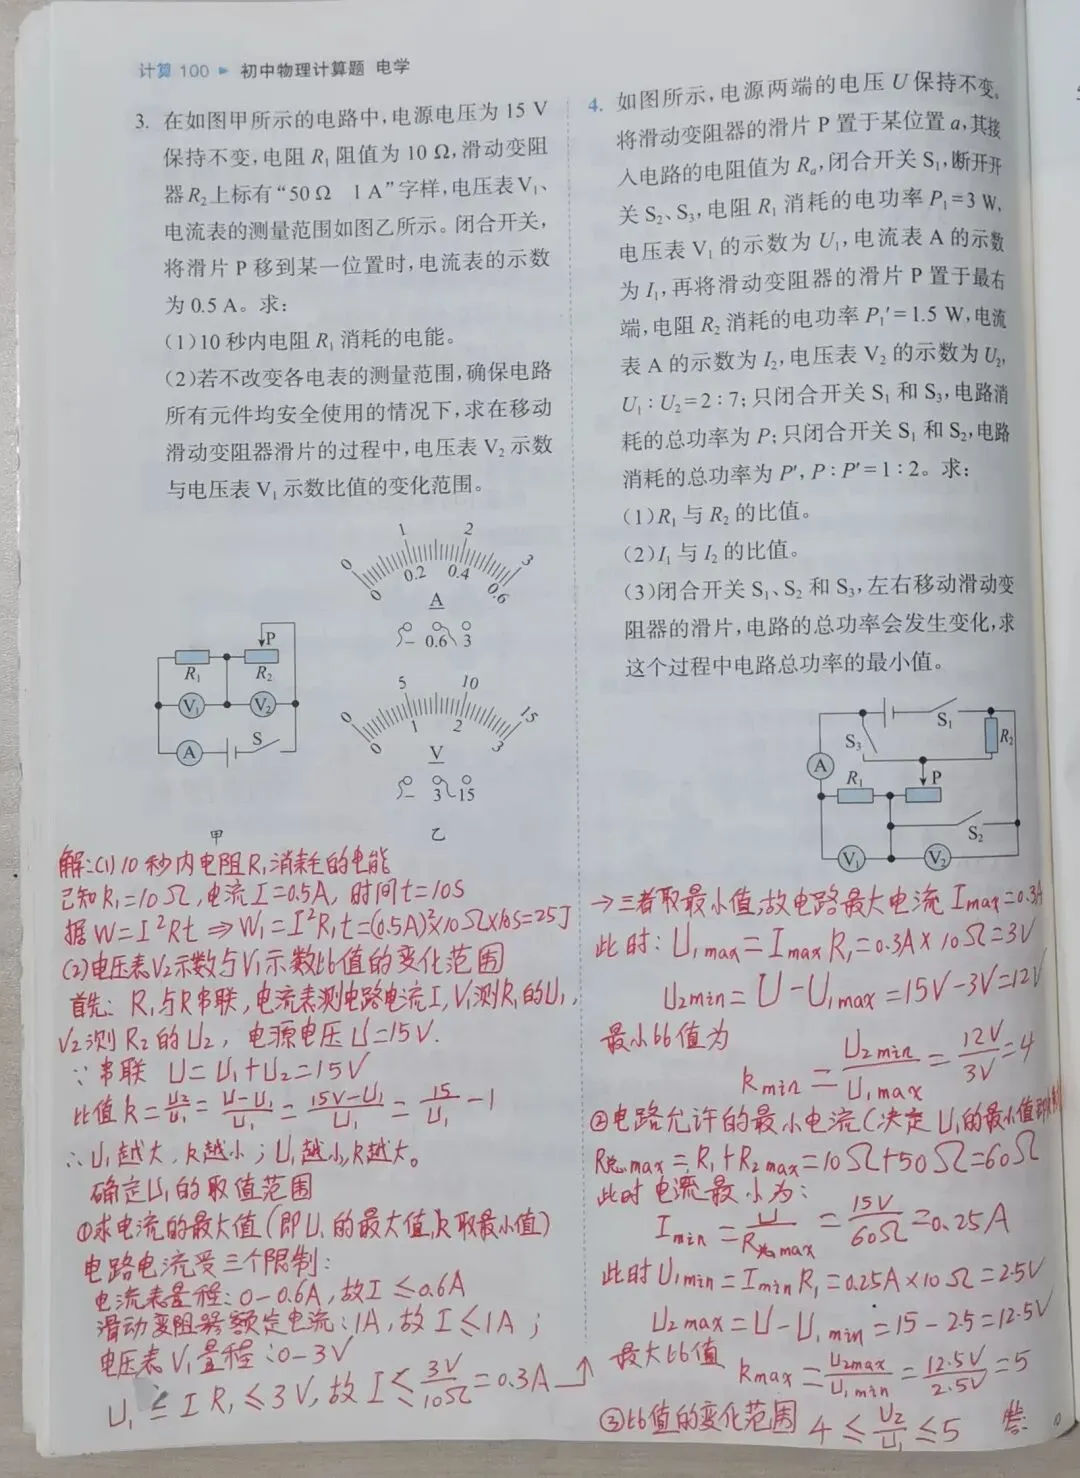 计算 100 ▶ 初中物理计算题 电学
3. 在如图甲所示的电路中,电源电压为 15 V
保持不变,电阻 R₁ 阻值为 10 Ω,滑动变阻
器 R₂ 上标有“50 Ω 1 A”字样,电压表 V₁、
电流表的测量范围如图乙所示。闭合开关,
将滑片 P 移到某一位置时,电流表的示数
为 0.5 A。求:
(1)10 秒内电阻 R₁ 消耗的电能。
(2)若不改变各电表的测量范围,确保电路
所有元件均安全使用的情况下,求在移动
滑动变阻器滑片的过程中,电压表 V₂ 示数
与电压表 V₁ 示数比值的变化范围。
0 1 2 3
0 0.2 0.4 0.6
A
- 0.6 3
P
R₁ R₂
V₁ V₂
A S
0 5 10 15
0 1 2 3
V
- 3 15
甲 乙
解:(1)10秒内电阻R₁消耗的电能
已知R₁=10Ω,电流I=0.5A,时间t=10s
据W=I²Rt⇒W₁=I²R₁t=(0.5A)²×10Ω×10s=25J
(2)电压表V₂示数与V₁示数比值的变化范围
首先:R₁与R串联,电流表测电路电流I,V₁测R₁的U₁,
V₂测R₂的U₂,电源电压U=15V.
∵串联 U=U₁+U₂=15V
比值k=U₂/U₁=(U-U₁)/U₁=(15V-U₁)/U₁=15/U₁-1
∴U₁越大,k越小;U₁越小,k越大。
确定U₁的取值范围
①求电流的最大值(即U₁的最大值,k取最小值)
电路电流受三个限制:
电流表量程:0-0.6A,故I≤0.6A
滑动变阻器额定电流:1A,故I≤1A;
电压表V₁量程:0-3V
U₁=IR₁≤3V,故I≤3V/10Ω=0.3A
4. 如图所示,电源两端的电压 U 保持不变。
将滑动变阻器的滑片 P 置于某位置 a,其接
入电路的电阻值为 Rₐ,闭合开关 S₁,断开开
关 S₂、S₃,电阻 R₁ 消耗的电功率 P₁=3 W,
电压表 V₁ 的示数为 U₁,电流表 A 的示数
为 I₁,再将滑动变阻器的滑片 P 置于最右
端,电阻 R₂ 消耗的电功率 P₁′=1.5 W,电流
表 A 的示数为 I₂,电压表 V₂ 的示数为 U₂,
U₁∶U₂=2∶7;只闭合开关 S₁ 和 S₃,电路消
耗的总功率为 P;只闭合开关 S₁ 和 S₂,电路
消耗的总功率为 P′,P∶P′=1∶2。求:
(1)R₁ 与 R₂ 的比值。
(2)I₁ 与 I₂ 的比值。
(3)闭合开关 S₁、S₂ 和 S₃,左右移动滑动变
阻器的滑片,电路的总功率会发生变化,求
这个过程中电路总功率的最小值。
S₁
S₃ R₂
A
R₁ P
S₂
V₁ V₂
→三者取最小值,故电路最大电流 Imax=0.3A
此时:U₁max=ImaxR₁=0.3A×10Ω=3V
U₂min=U-U₁max=15V-3V=12V
最小比值为
kmin=U₂min/U₁max=12V/3V=4
②电路允许的最小电流(决定U₁的最小值
R总max=R₁+R₂max=10Ω+50Ω=60Ω
此时电流最小为:
Imin=U/R总max=15V/60Ω=0.25A
此时U₁min=IminR₁=0.25A×10Ω=2.5V
U₂max=U-U₁min=15-2.5=12.5V
最大比值 kmax=U₂max/U₁min=12.5V/2.5V=5
③比值的变化范围 4≤U₂/U₁≤5